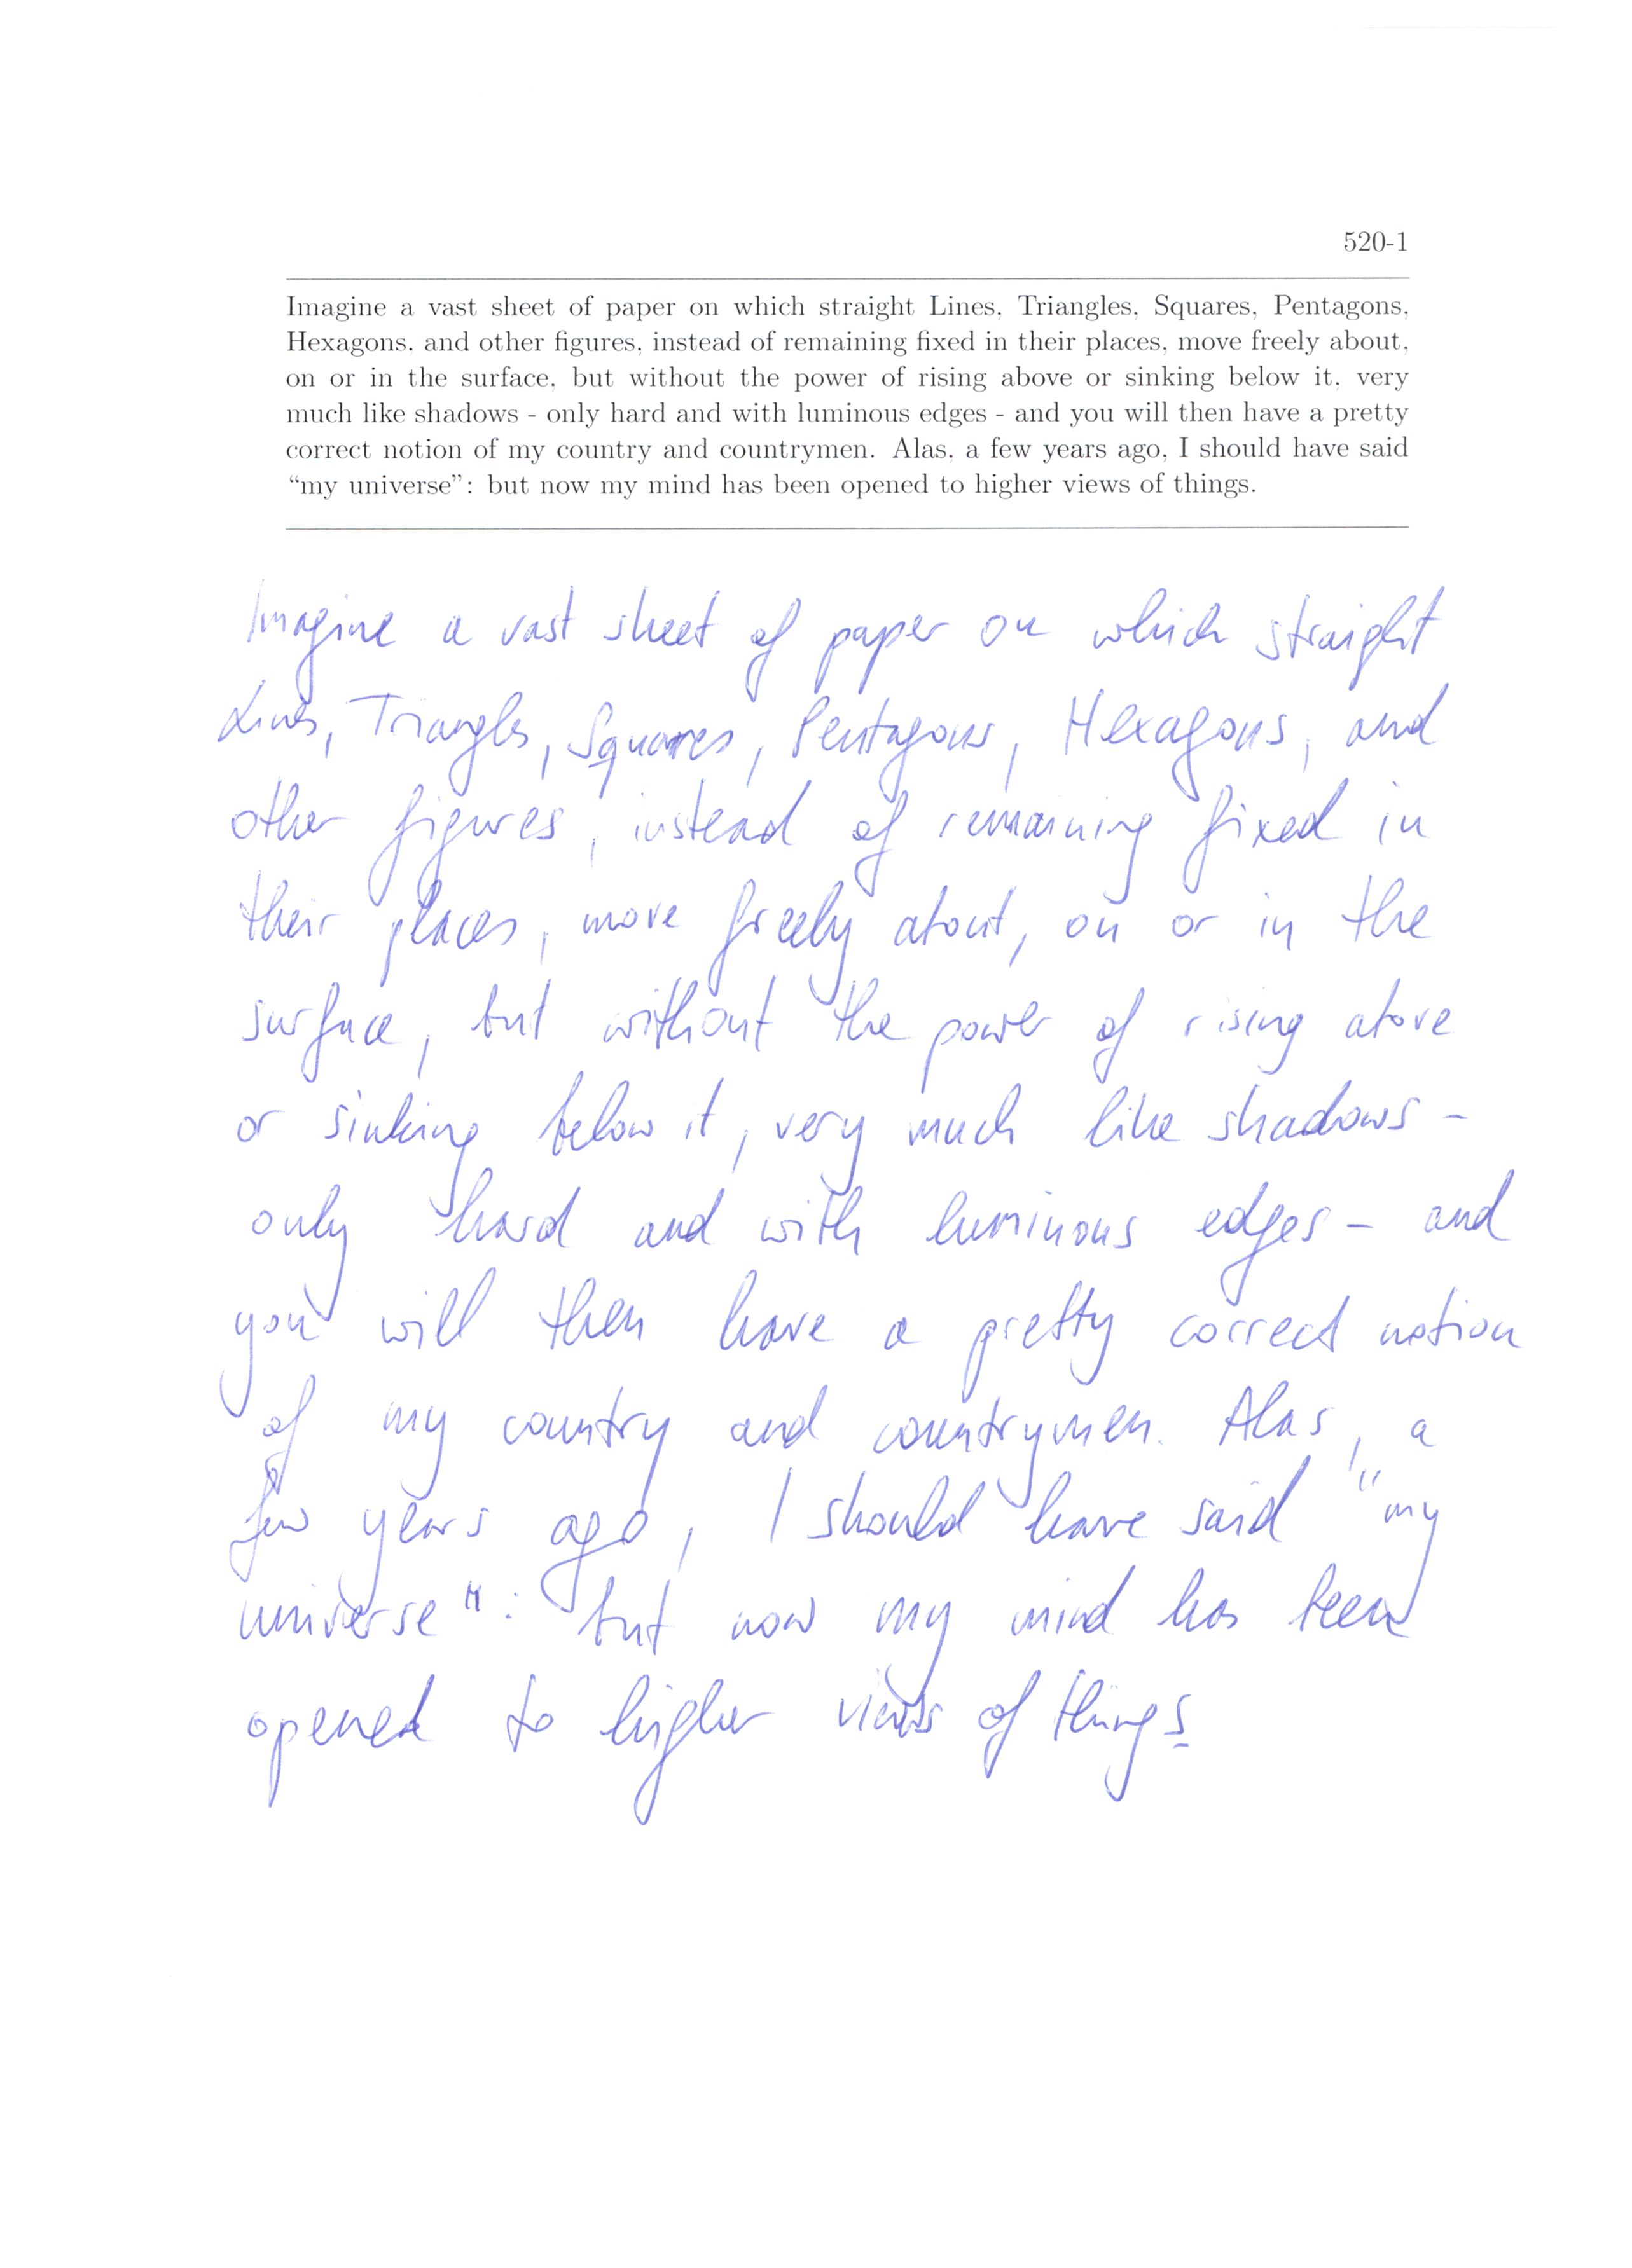 520-1
Imagine a vast sheet of paper on which straight Lines, Triangles, Squares, Pentagons,
Hexagons, and other figures, instead of remaining fixed in their places, move freely about,
on or in the surface, but without the power of rising above or sinking below it, very
much like shadows - only hard and with luminous edges - and you will then have a pretty
correct notion of my country and countrymen. Alas, a few years ago, I should have said
“my universe”: but now my mind has been opened to higher views of things.
Imagine a vast sheet of paper on which straight
Lines, Triangles, Squares, Pentagons, Hexagons, and
other figures, instead of remaining fixed in
their places, move freely about, on or in the
surface, but without the power of rising above
or sinking below it, very much like shadows -
only hard and with luminous edges - and
you will then have a pretty correct notion
of my country and countrymen. Alas, a
few years ago, I should have said "my
universe": but now my mind has been
opened to higher views of things